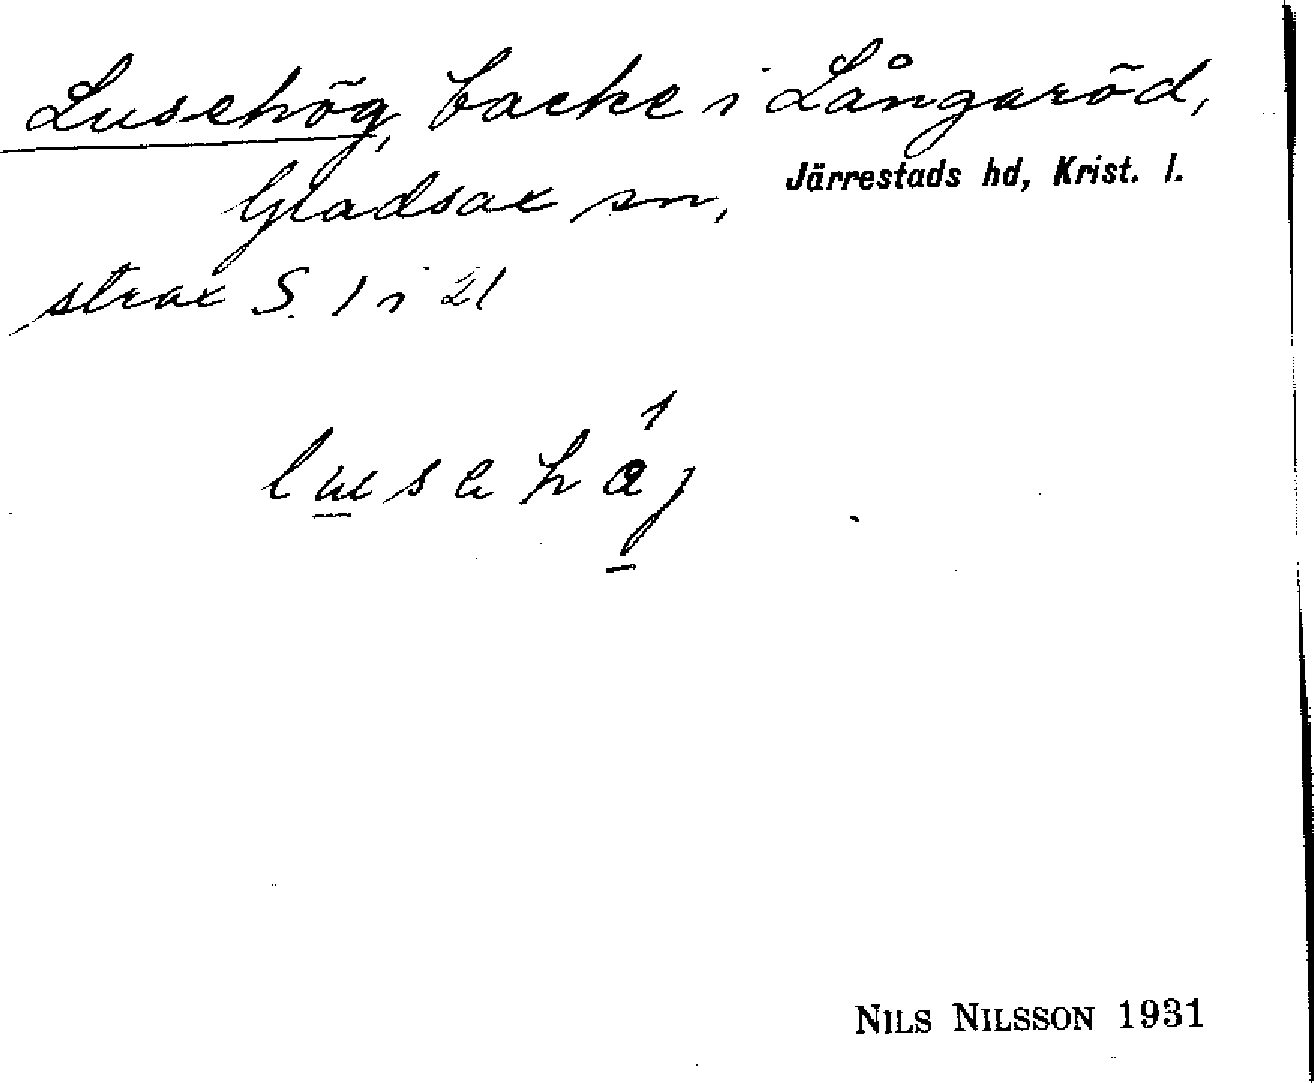 Lusehög, backe i Långaröd,
Gladsax sn, Järrestads hd, Krist. l.
strax S. 1 i 21
NILS NILSSON 1931